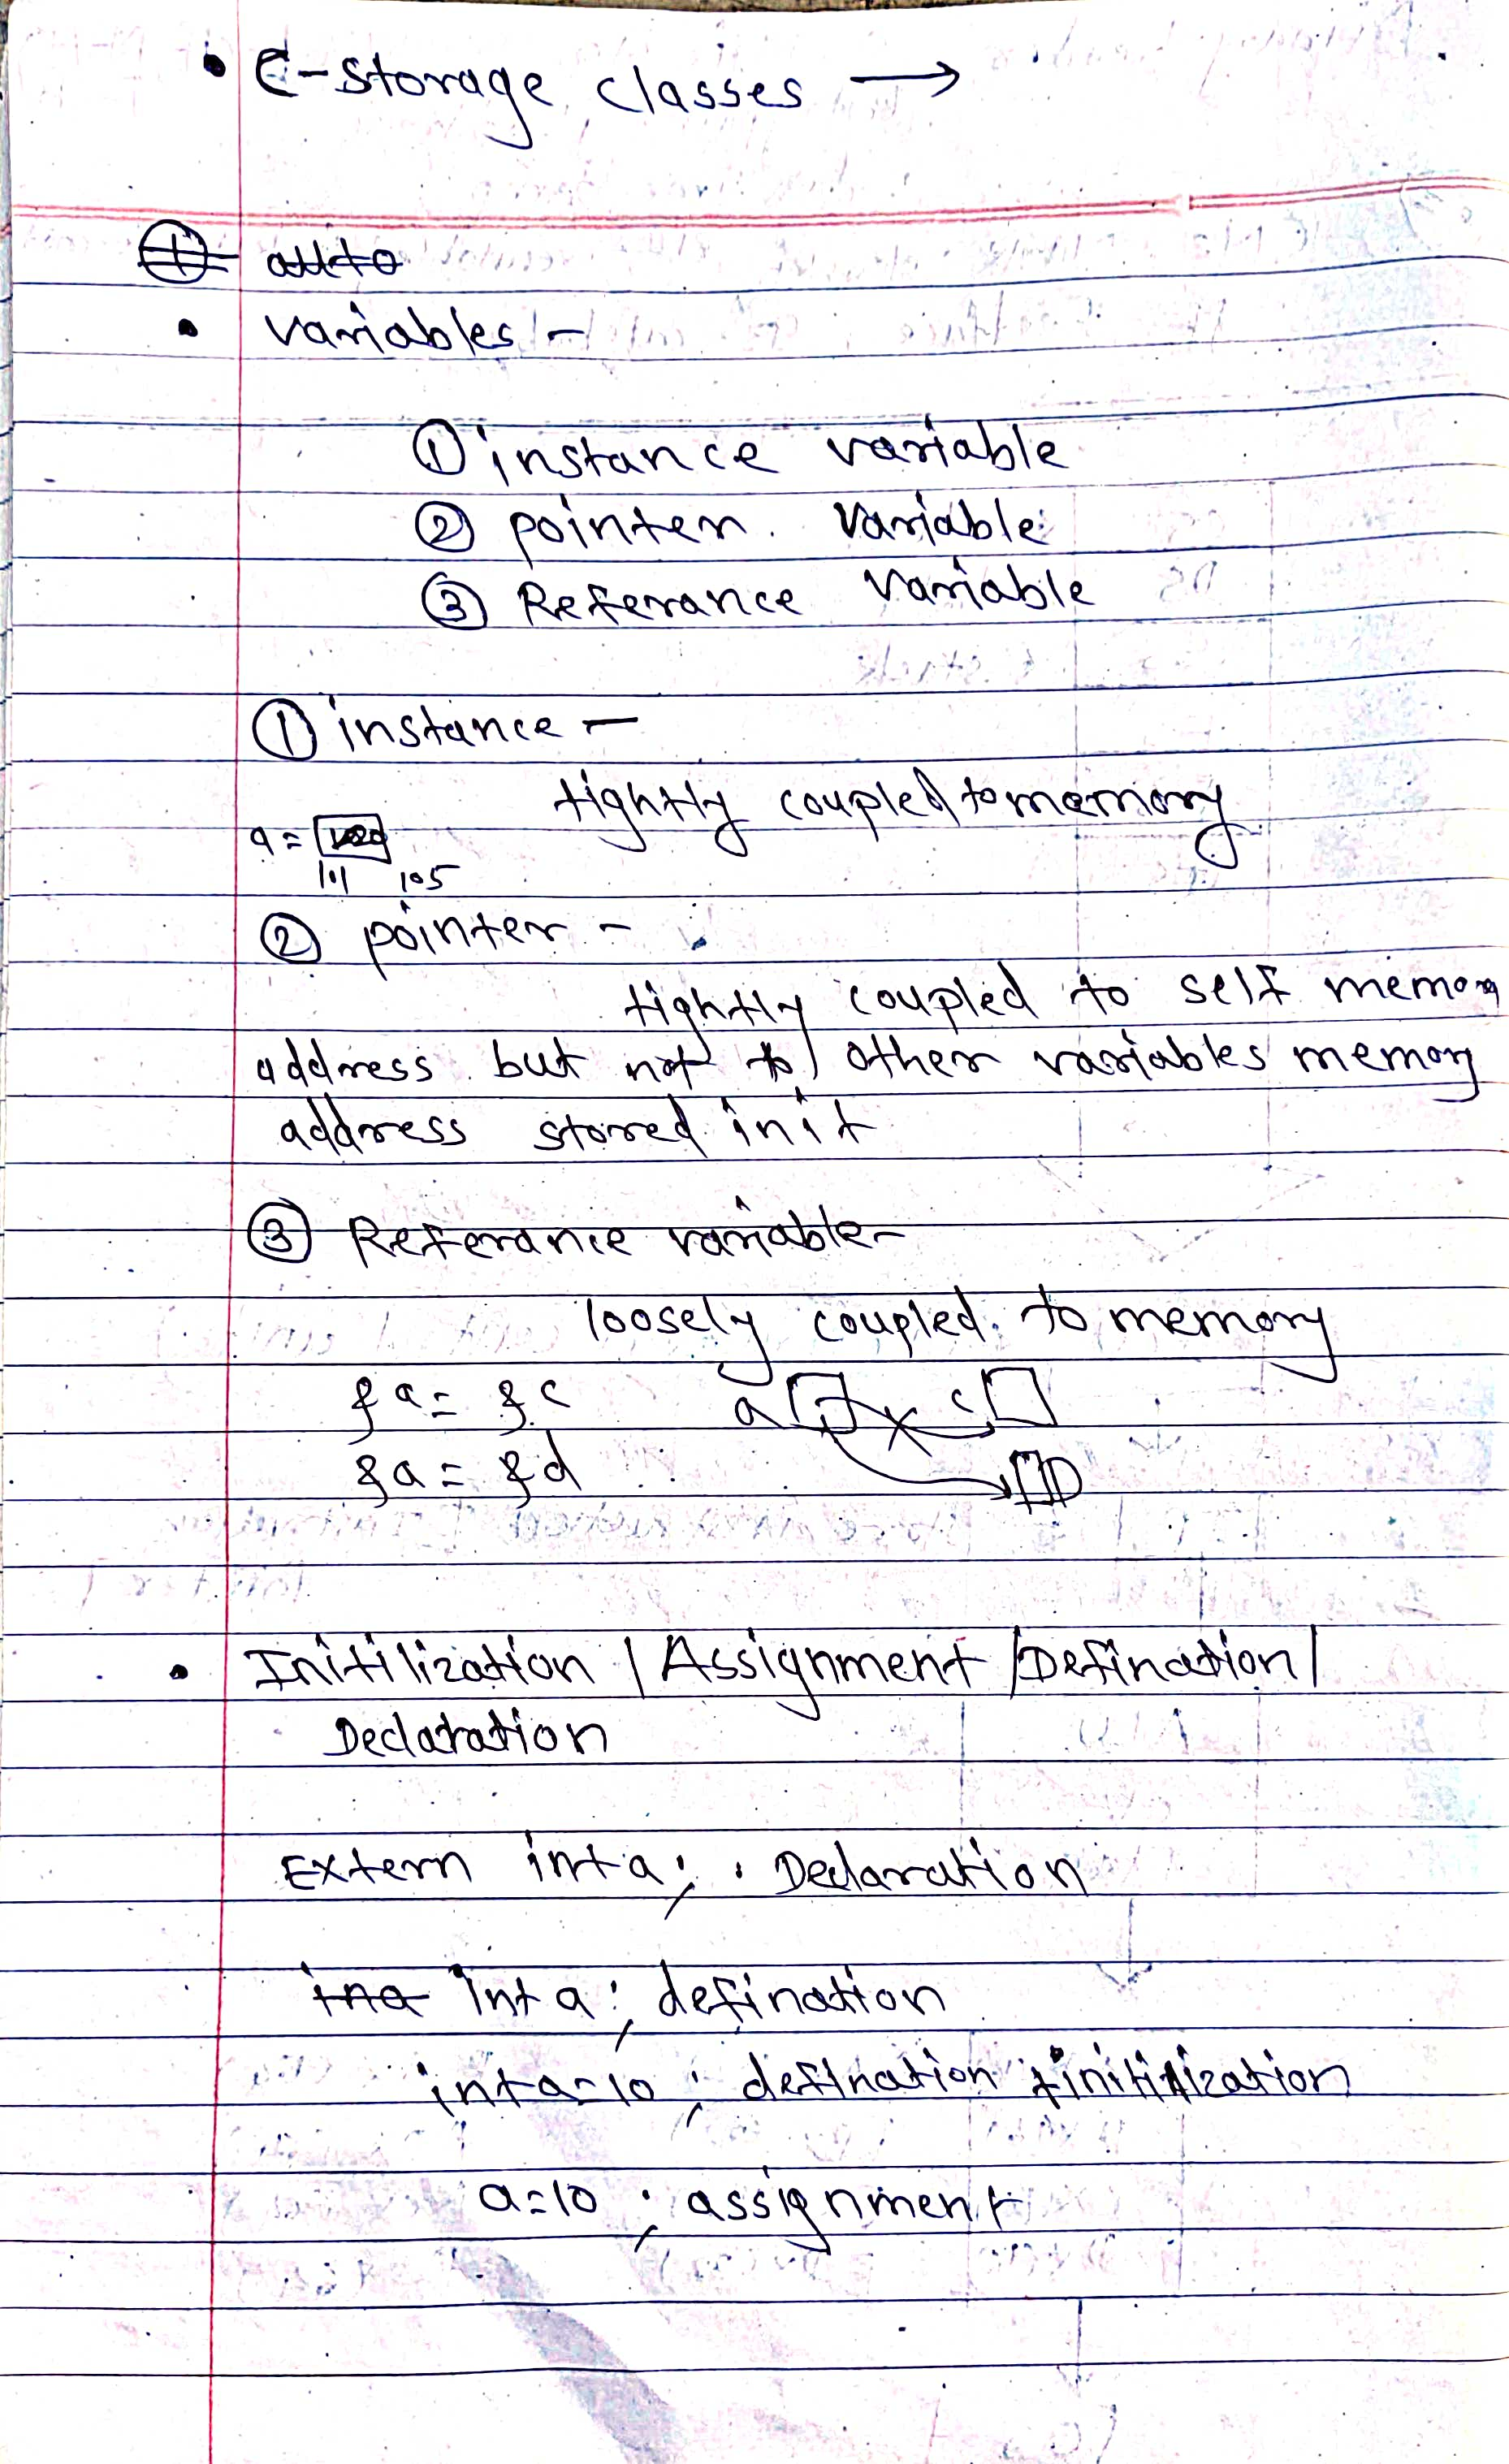 • C-Storage classes →
① auto
• variables -
① instance variable
② pointer variable
③ Referance variable
① instance -
tightly coupled to memory
a =
101 105
② pointer -
tightly coupled to self memory
address but not to other variables memory
address stored in it
③ Referance variable -
loosely coupled to memory
&a = &c a c
&a = &d D
• Initilization / Assignment / Defination /
Declaration
Extern int a; Declaration
ina int a; defination
int a=10; defination + initilization
a=10; assignment